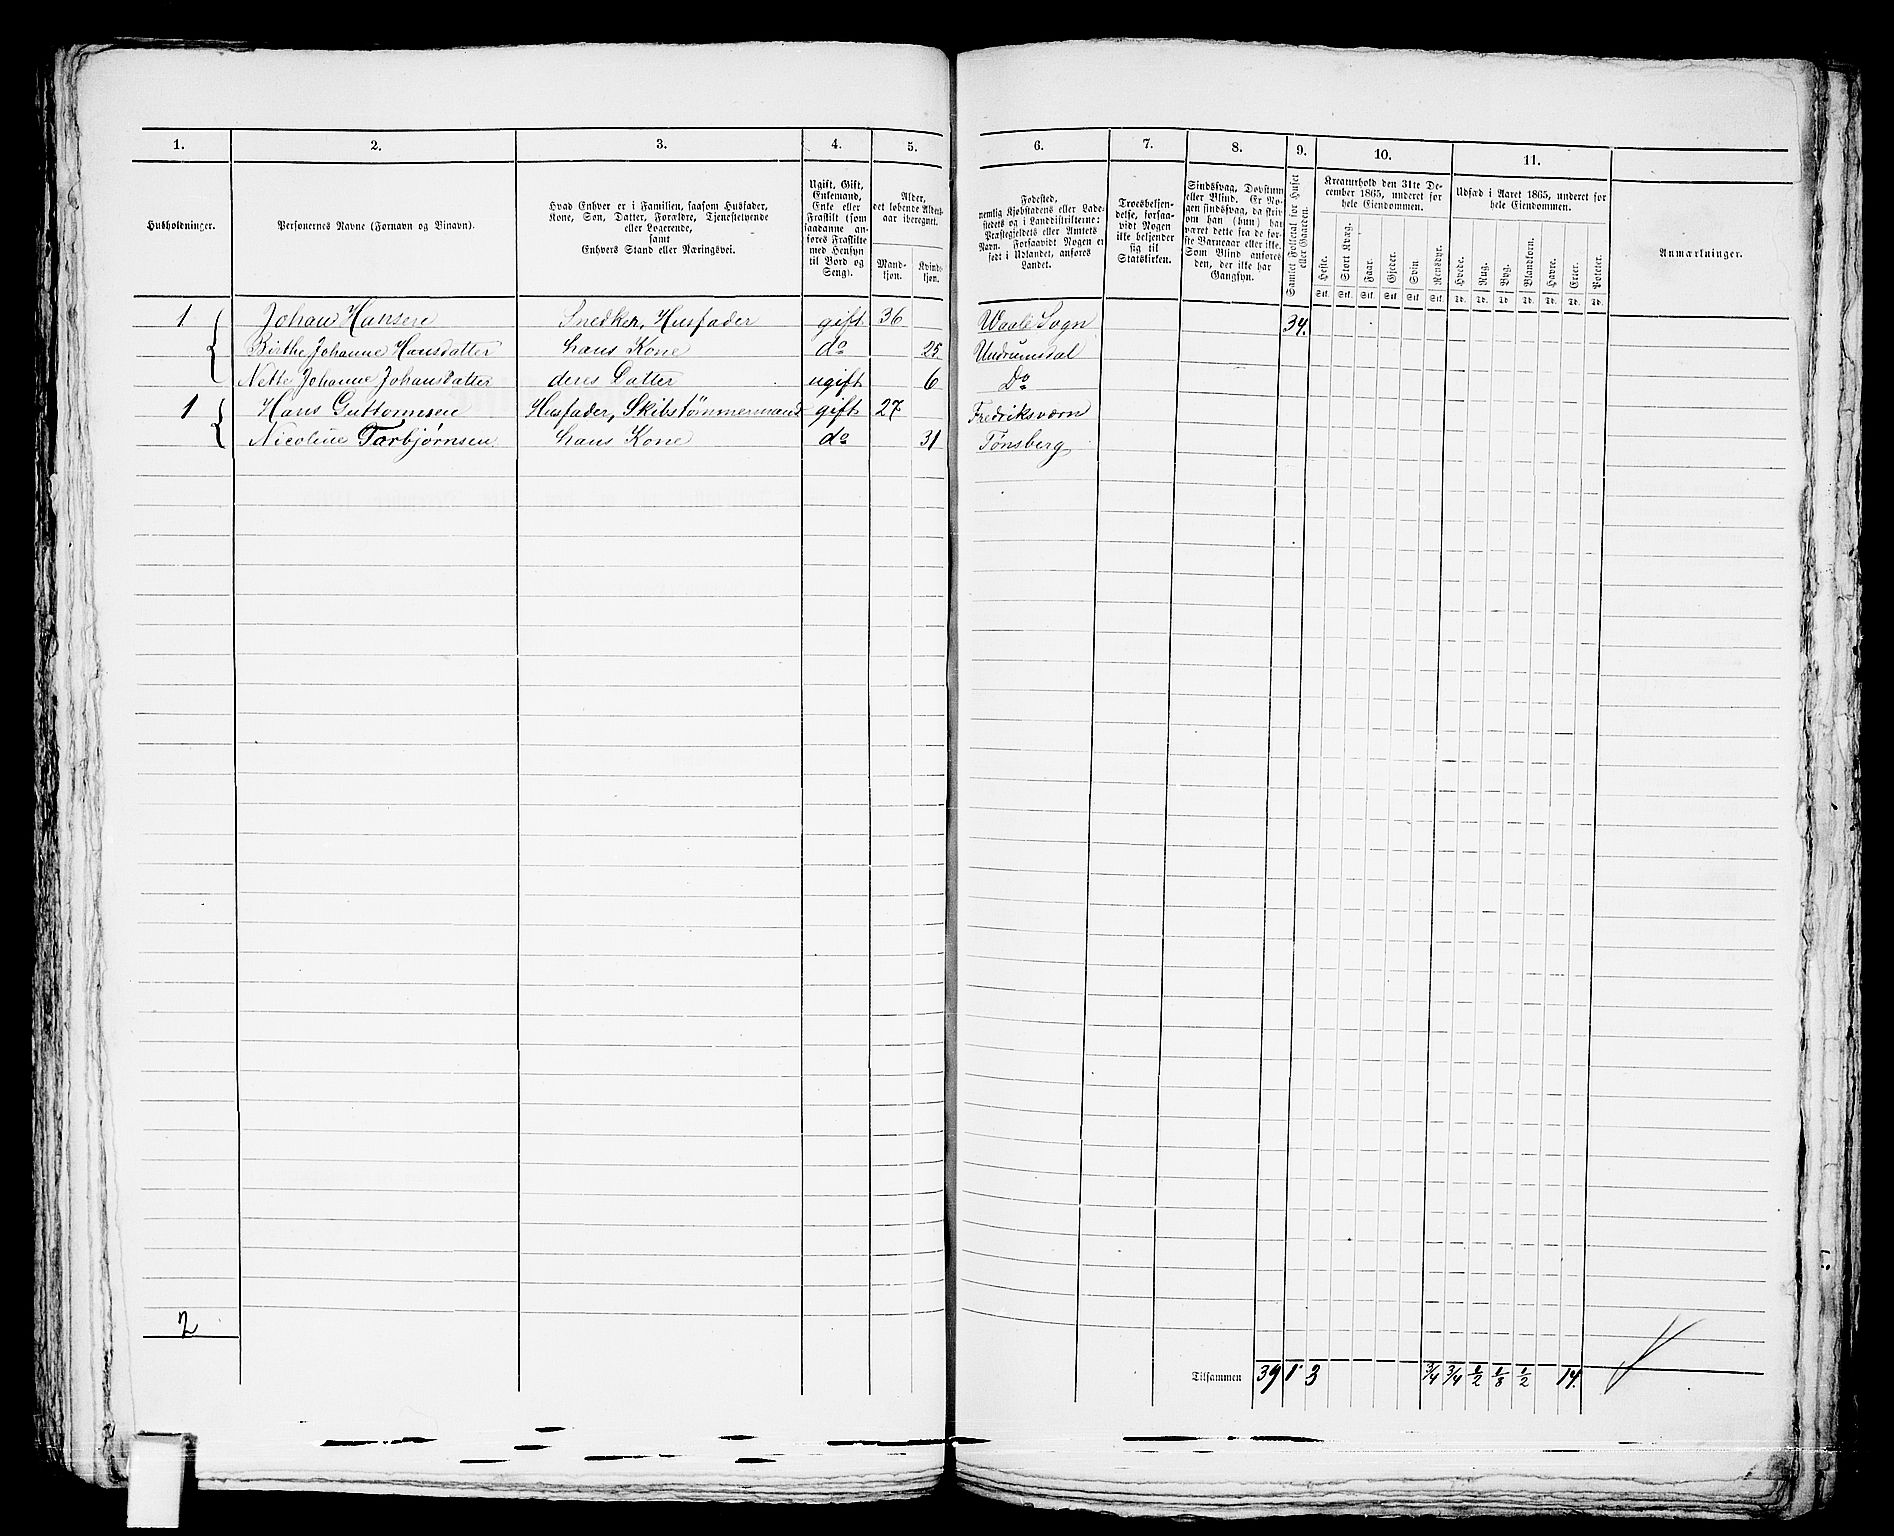 1. 2. 3. 4. 5. 6. 7. 8. 9. 10. 11.
Husholdninger.
Personernes Navne (Fornavn og Binavn).
Hvad Enhver er i Familien, saasom Husfader,
Kone, Søn, Datter, Forældre, Tjenestetyende
eller Logerende,
samt
Enhvers Stand eller Næringsvei.
Ugift, Gift,
Enkemand,
Enke eller
Fraskilt (som
saadanne an-
føres Fraskilte
med Hensyn
til Bord og
Seng).
Alder,
det løbende Alders-
aar iberegnet.
Mand-
kjøn.
Kvind-
kjøn.
Fødested,
nemlig Kjøbstadens eller Lade-
stedets og i Landdistrikterne:
Præstegjeldets eller Amtets
Navn. Forsaavidt Nogen er
født i Udlandet, anføres
Landet.
Troesbekjen-
delse, forsaa-
vidt Nogen
ikke bekjender
sig til
Statskirken.
Sindssvag, Døvstum
eller Blind. Er No-
gen sindssvag, da skriv
om han (hun) har
været dette fra de før-
ste Barneaar eller ikke.
Som Blind anføres
den, der ikke har
Gangsyn.
Samlet Folketal for Huset
eller Gaarden.
Kreaturhold den 31te De-
cember 1865, underet for
hele Eiendommen.
Heste. Stort Kvæg. Faar. Gjeder. Svin Rensdyr.
Stk. Stk. Stk. Stk. Stk. Stk.
Udsæd i Aaret 1865, underet for
hele Eiendommen.
Hvede. Rug. Byg. Blandkorn. Havre. Erter. Poteter.
Td. Td. Td. Td. Td. Td. Td.
Anmærkninger.
1 Johan Hansen Snedker, Husfader gift 36 Waale Sogn 34.
Birthe Johanne Hansdatter hans Kone do 25 Undrumsdal
Nette Johanne Johansdatter deres Datter ugift 6 Do
1 Hans Guttormsen Husfader, Skibstømmermand gift 27 Fredriksværn
Nicoline Torbjørnsen hans Kone do 31 Tønsberg
2
Tilsammen 39 1 3 3/4 3/4 1/2 1/8 1/2 14.